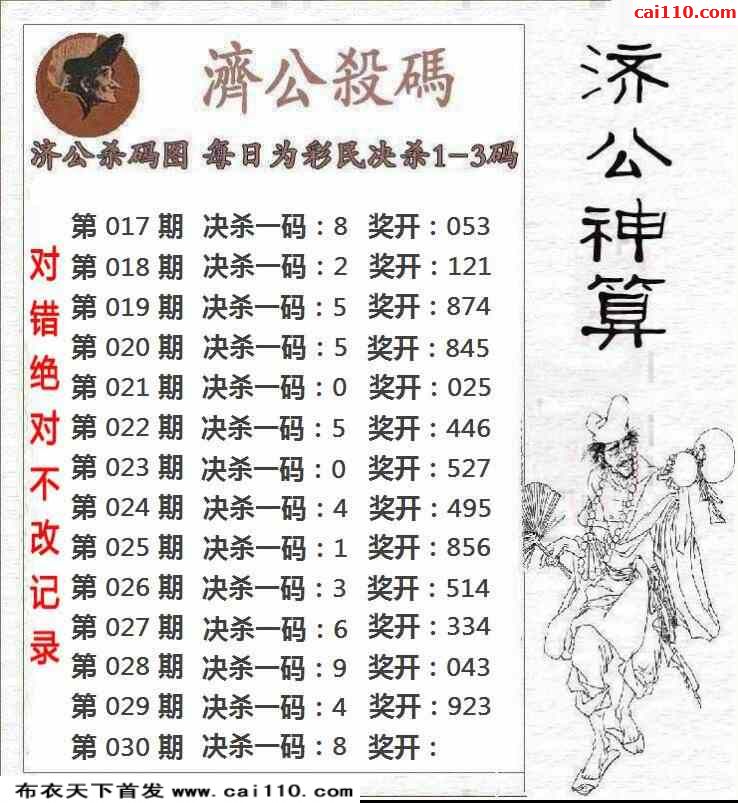 cai110.com
濟公殺碼
济公杀码图 每日为彩民决杀1-3码
第 017 期 决杀一码：8 奖开：053
第 018 期 决杀一码：2 奖开：121
第 019 期 决杀一码：5 奖开：874
第 020 期 决杀一码：5 奖开：845
第 021 期 决杀一码：0 奖开：025
第 022 期 决杀一码：5 奖开：446
第 023 期 决杀一码：0 奖开：527
第 024 期 决杀一码：4 奖开：495
第 025 期 决杀一码：1 奖开：856
第 026 期 决杀一码：3 奖开：514
第 027 期 决杀一码：6 奖开：334
第 028 期 决杀一码：9 奖开：043
第 029 期 决杀一码：4 奖开：923
第 030 期 决杀一码：8 奖开：
对错绝对不改记录
济公神算
布衣天下首发 www.cai110.com